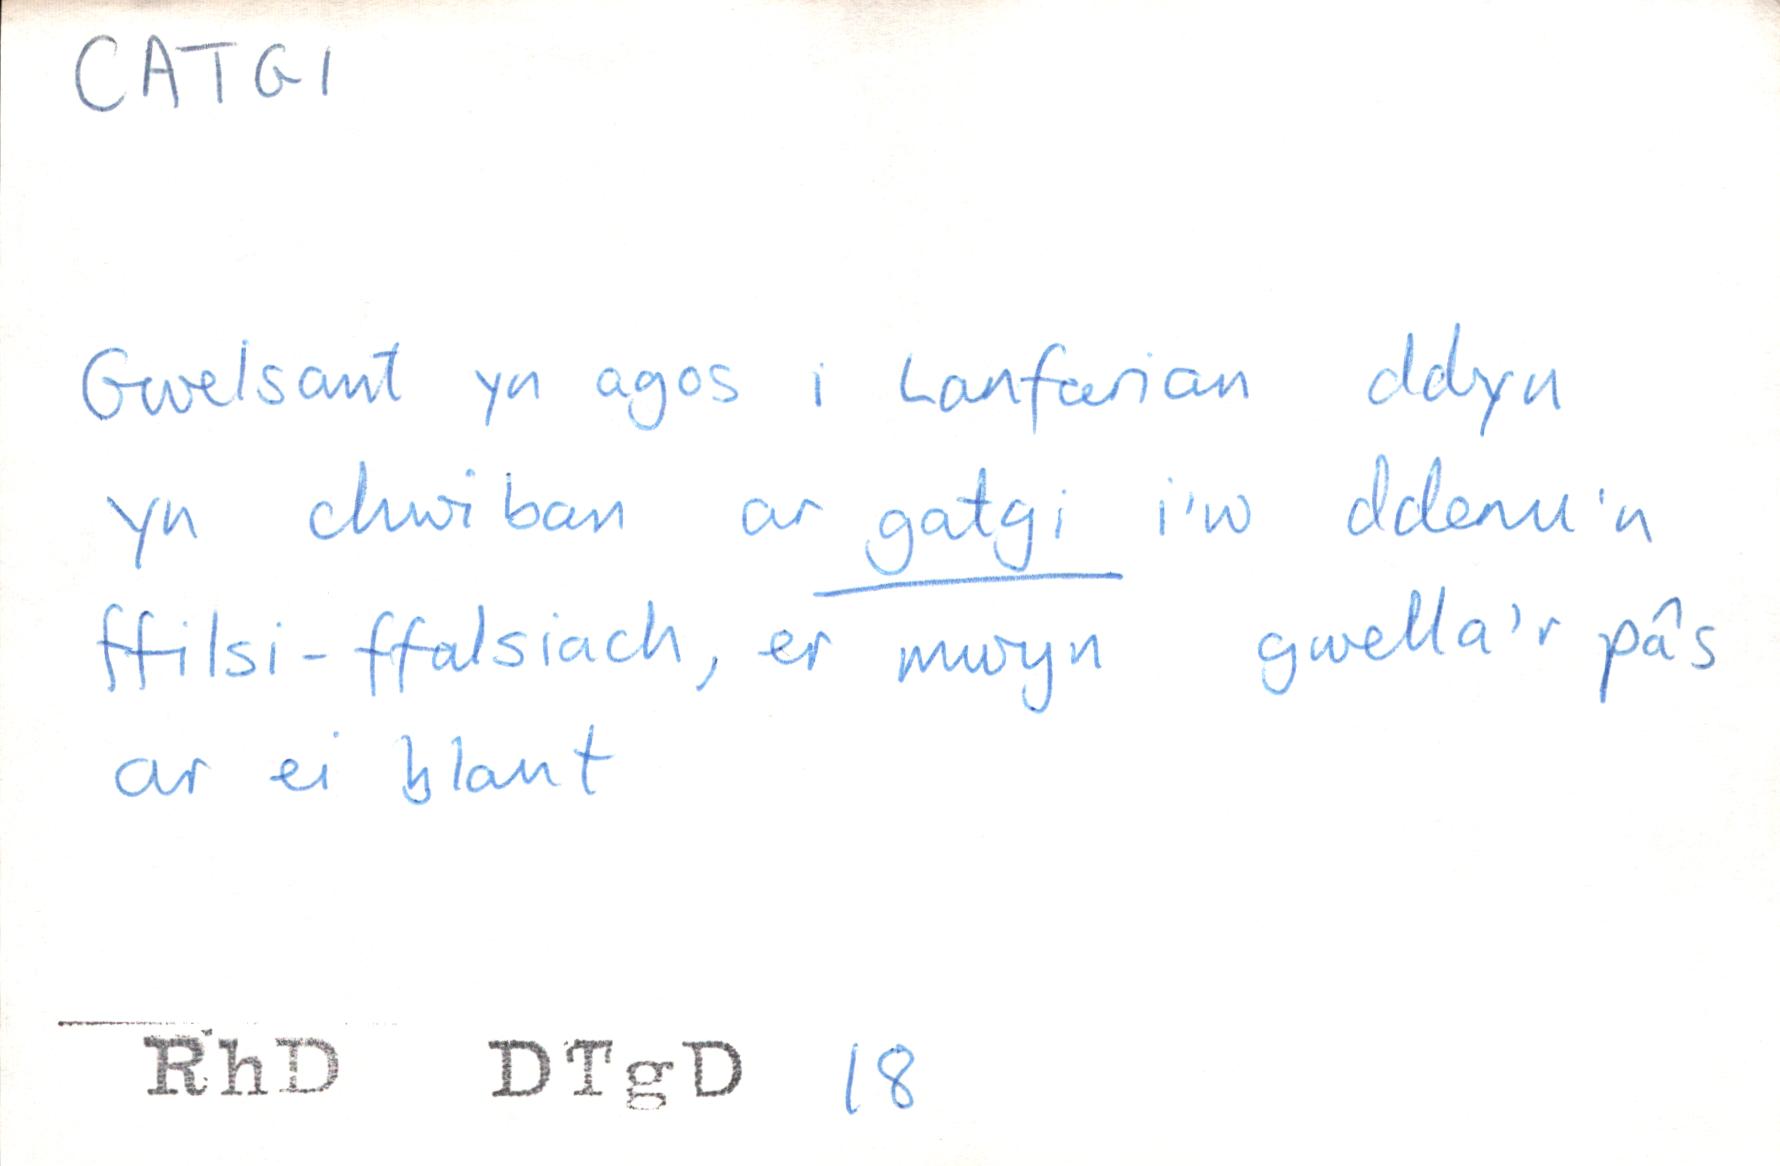 CATGI
Gwelsant yn agos i Lanfarian ddyn
yn chwiban ar gatgi i'w ddenu'n
ffilsi-ffalsiach, er mwyn gwella'r pâs
ar ei blant
RhD DTgD 18